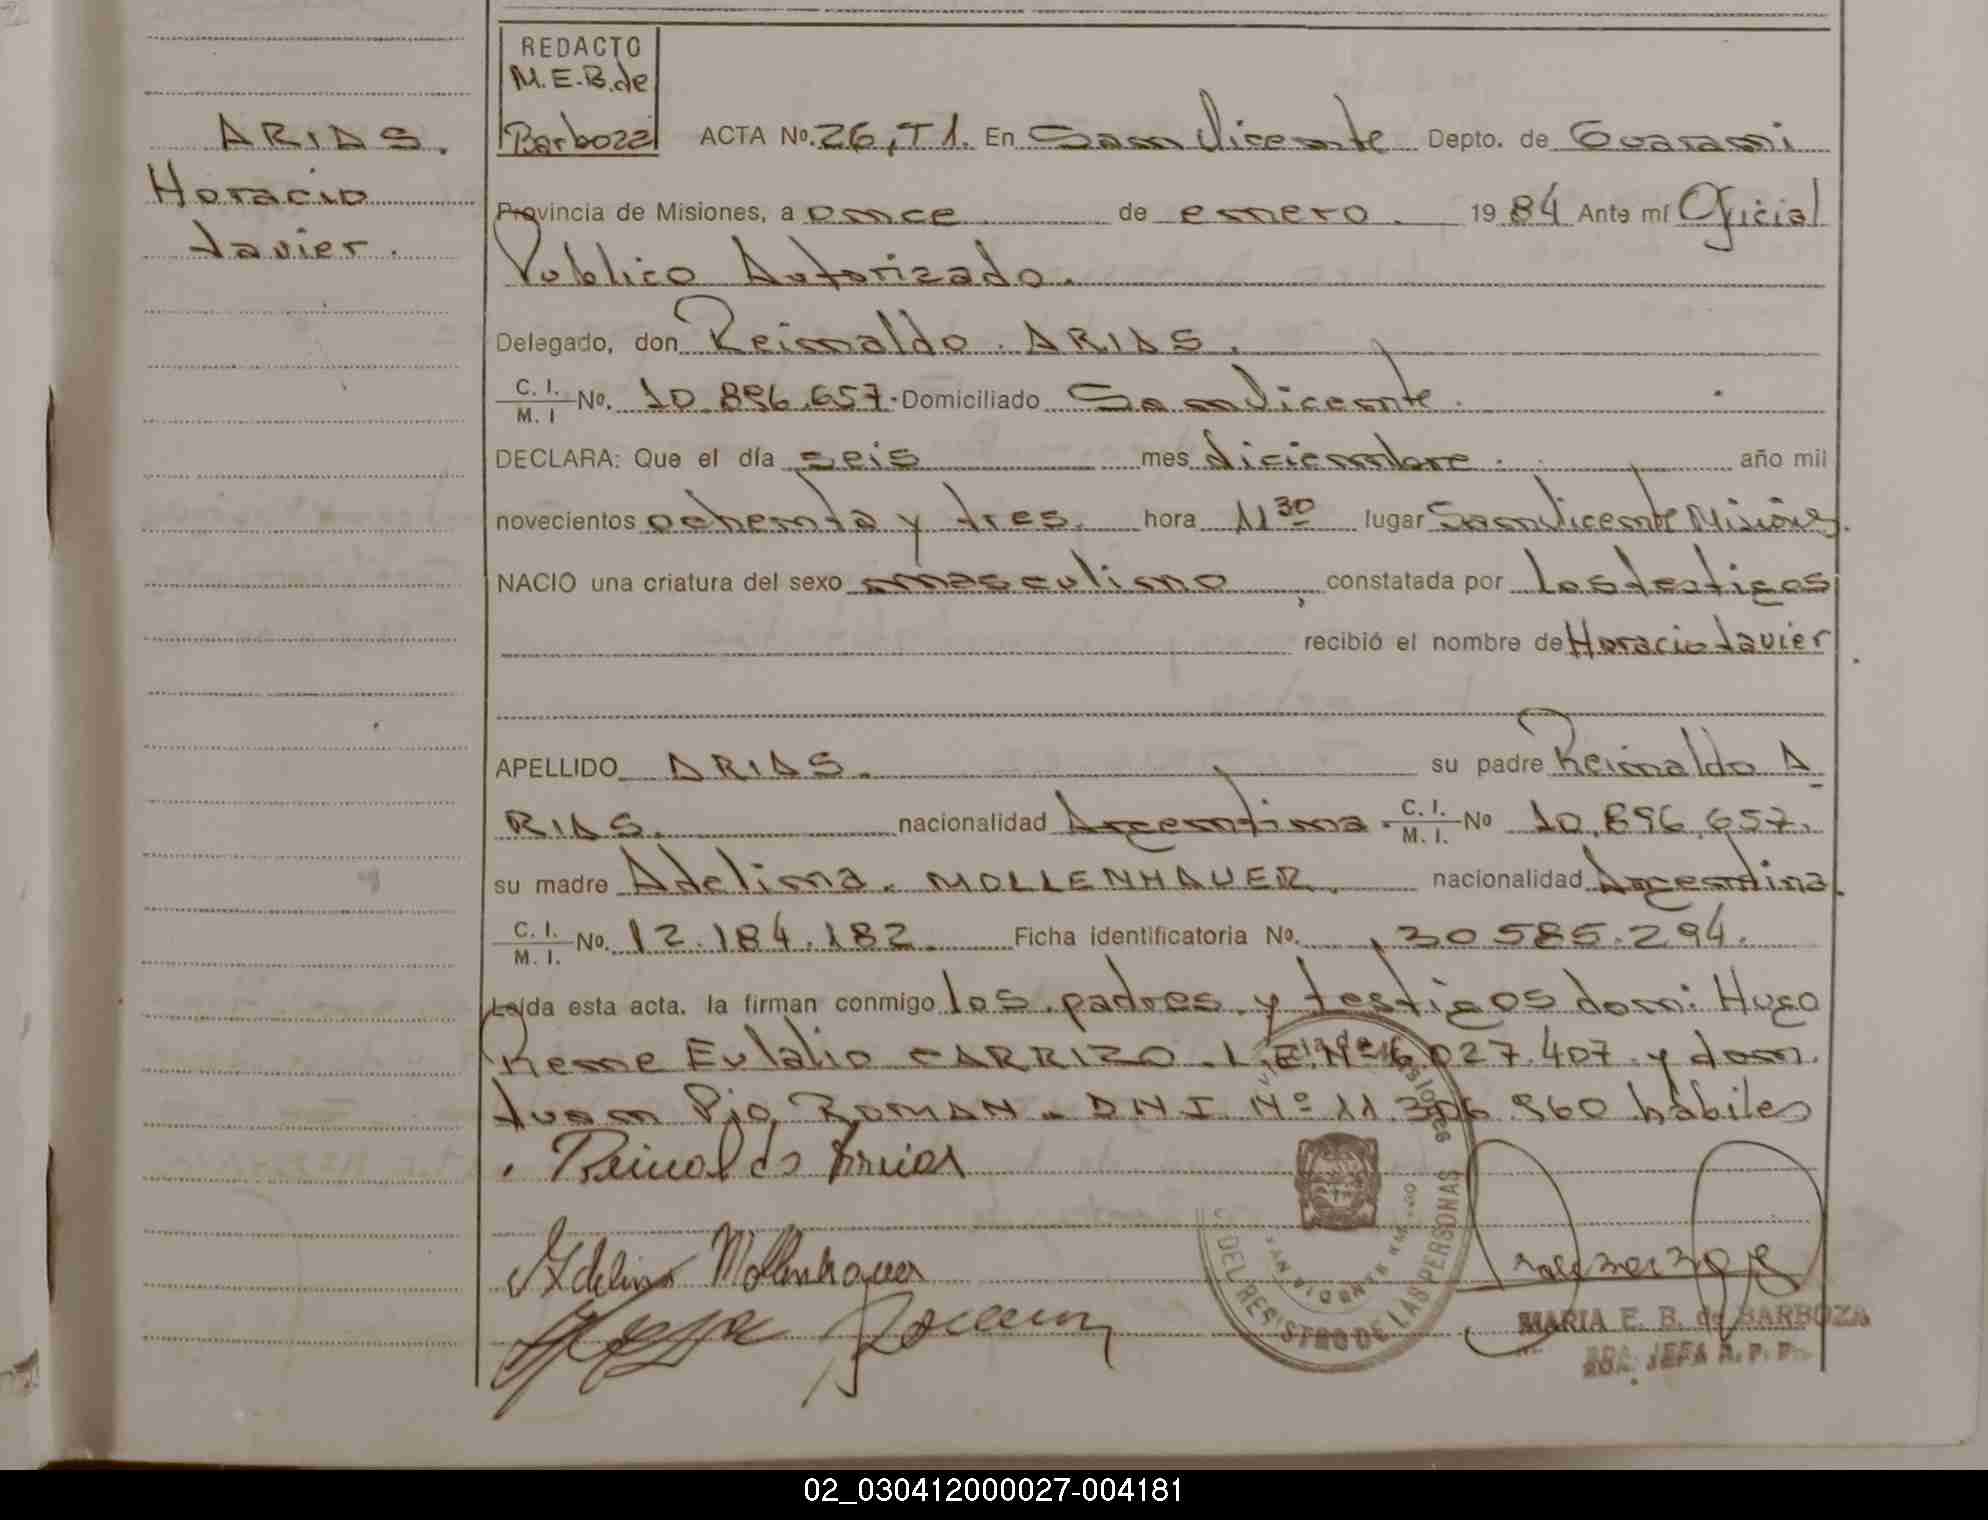 REDACTO
M.E.B. de
Barboza
ARIAS.
Horacio
Javier.
ACTA Nº. 26, T 1. En San Vicente Depto. de Guarani
Provincia de Misiones, a once de enero . 19 84 Ante mí Oficial
Publico Autorizado.
Delegado, don Reinaldo ARIAS.
C. I. / M. I No. 10.896.657. Domiciliado San Vicente.
DECLARA: Que el día seis mes diciembre . año mil
novecientos ochenta y tres. hora 11 30 lugar San Vicente Misiones.
NACIO una criatura del sexo masculino , constatada por los testigos
recibió el nombre de Horacio Javier
APELLIDO ARIAS. su padre Reinaldo A
RIAS. nacionalidad Argentina . C. I. / M. I. Nº 10.896.657.
su madre Adelina . MOLLENHAUER. nacionalidad Argentina.
C. I. / M. I. No. 12.184.182. Ficha identificatoria No. 30 585.294.
Leída esta acta, la firman conmigo los padres y testigos don: Hugo
Rene Eulalio CARRIZO . L.E.Nº 6.027.407 y don.
Juan Pio ROMAN . DNI Nº 11 306 960 hábiles
. Reinaldo Arias
Adelina Mollenhauer
DEL REGISTRO DE LAS PERSONAS
MARIA E. B. de BARBOZA
JEFA R. P. P.
02_030412000027-004181